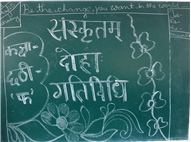 Be the change, you want in the world
संस्कृतम्
दोहा
गतिविधि
कक्षा-
छठी-
'फ'